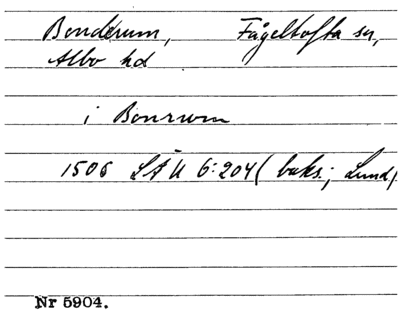 Bonderum, Fågeltofta sn,
Albo hd
i Bonrum
1506 LÄU 6:204 (baks.; Lund)
Nr 5904.